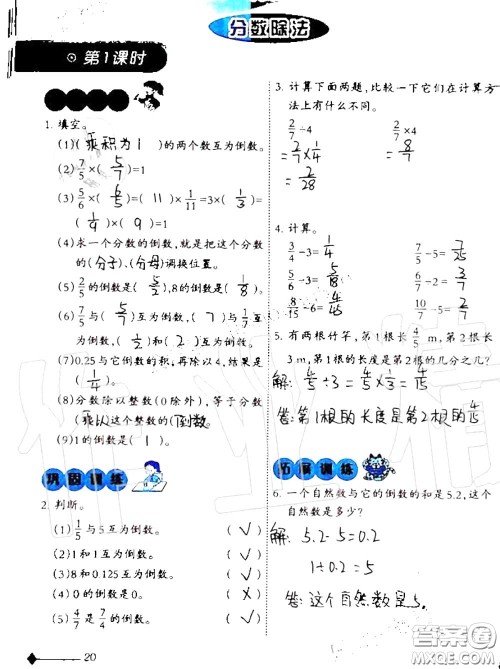 分数除法
第1课时
1. 填空。
(1)(乘积为1)的两个数互为倒数。
(2) 7/5 ×( 5/7 )=1
(3) 5/6 ×( 6/5 )=( 11 )× 1/11 =3×( 1/3 )=
( 1/9 )×( 9 )=1
(4)求一个分数的倒数,就是把这个分数
的(分子)、(分母)调换位置。
(5) 2/5 的倒数是( 5/2 ),8的倒数是( 1/8 )。
(6) 7/5 与( 5/7 )互为倒数,( 7 )与 1/7 互
为倒数,( 1/2 )和( 2 )互为倒数。
(7)0.25与它倒数的积,再除以4,结果是
( 1/4 )。
(8)分数除以整数(0除外),等于分数
(乘以)这个整数的(倒数)。
(9)1的倒数是( 1 )。
巩固训练
2. 判断。
(1) 1/5 与5互为倒数。 ( √ )
(2)1和1互为倒数。 ( √ )
(3)8和0.125互为倒数。 ( √ )
(4)0的倒数是0。 ( × )
(5) 4/7 是 7/4 的倒数。 ( √ )
20
3. 计算下面两题,比较一下它们在计算方
法上有什么不同。
2/7 ÷4 2/7 ×4
= 2/7 × 1/4 = 8/7
= 2/28
4. 计算。
3/4 ÷3= 1/4 7/5 ÷5= 7/25
5/6 ÷3= 5/18 6/7 ÷2= 3/7
8/15 ÷6= 4/45 10/7 ÷5= 2/7
5. 有两根竹竿,第1根长 4/5 m,第2根长
3 m,第1根的长度是第2根的几分之几?
解: 4/5 ÷3= 4/5 × 1/3 = 4/15
答:第1根的长度是第2根的 4/15
拓展训练
6. 一个自然数与它的倒数的和是5.2,这个
自然数是多少?
解: 5.2-5=0.2
1÷0.2=5
答:这个自然数是5.
答案圈
MXQE.COM